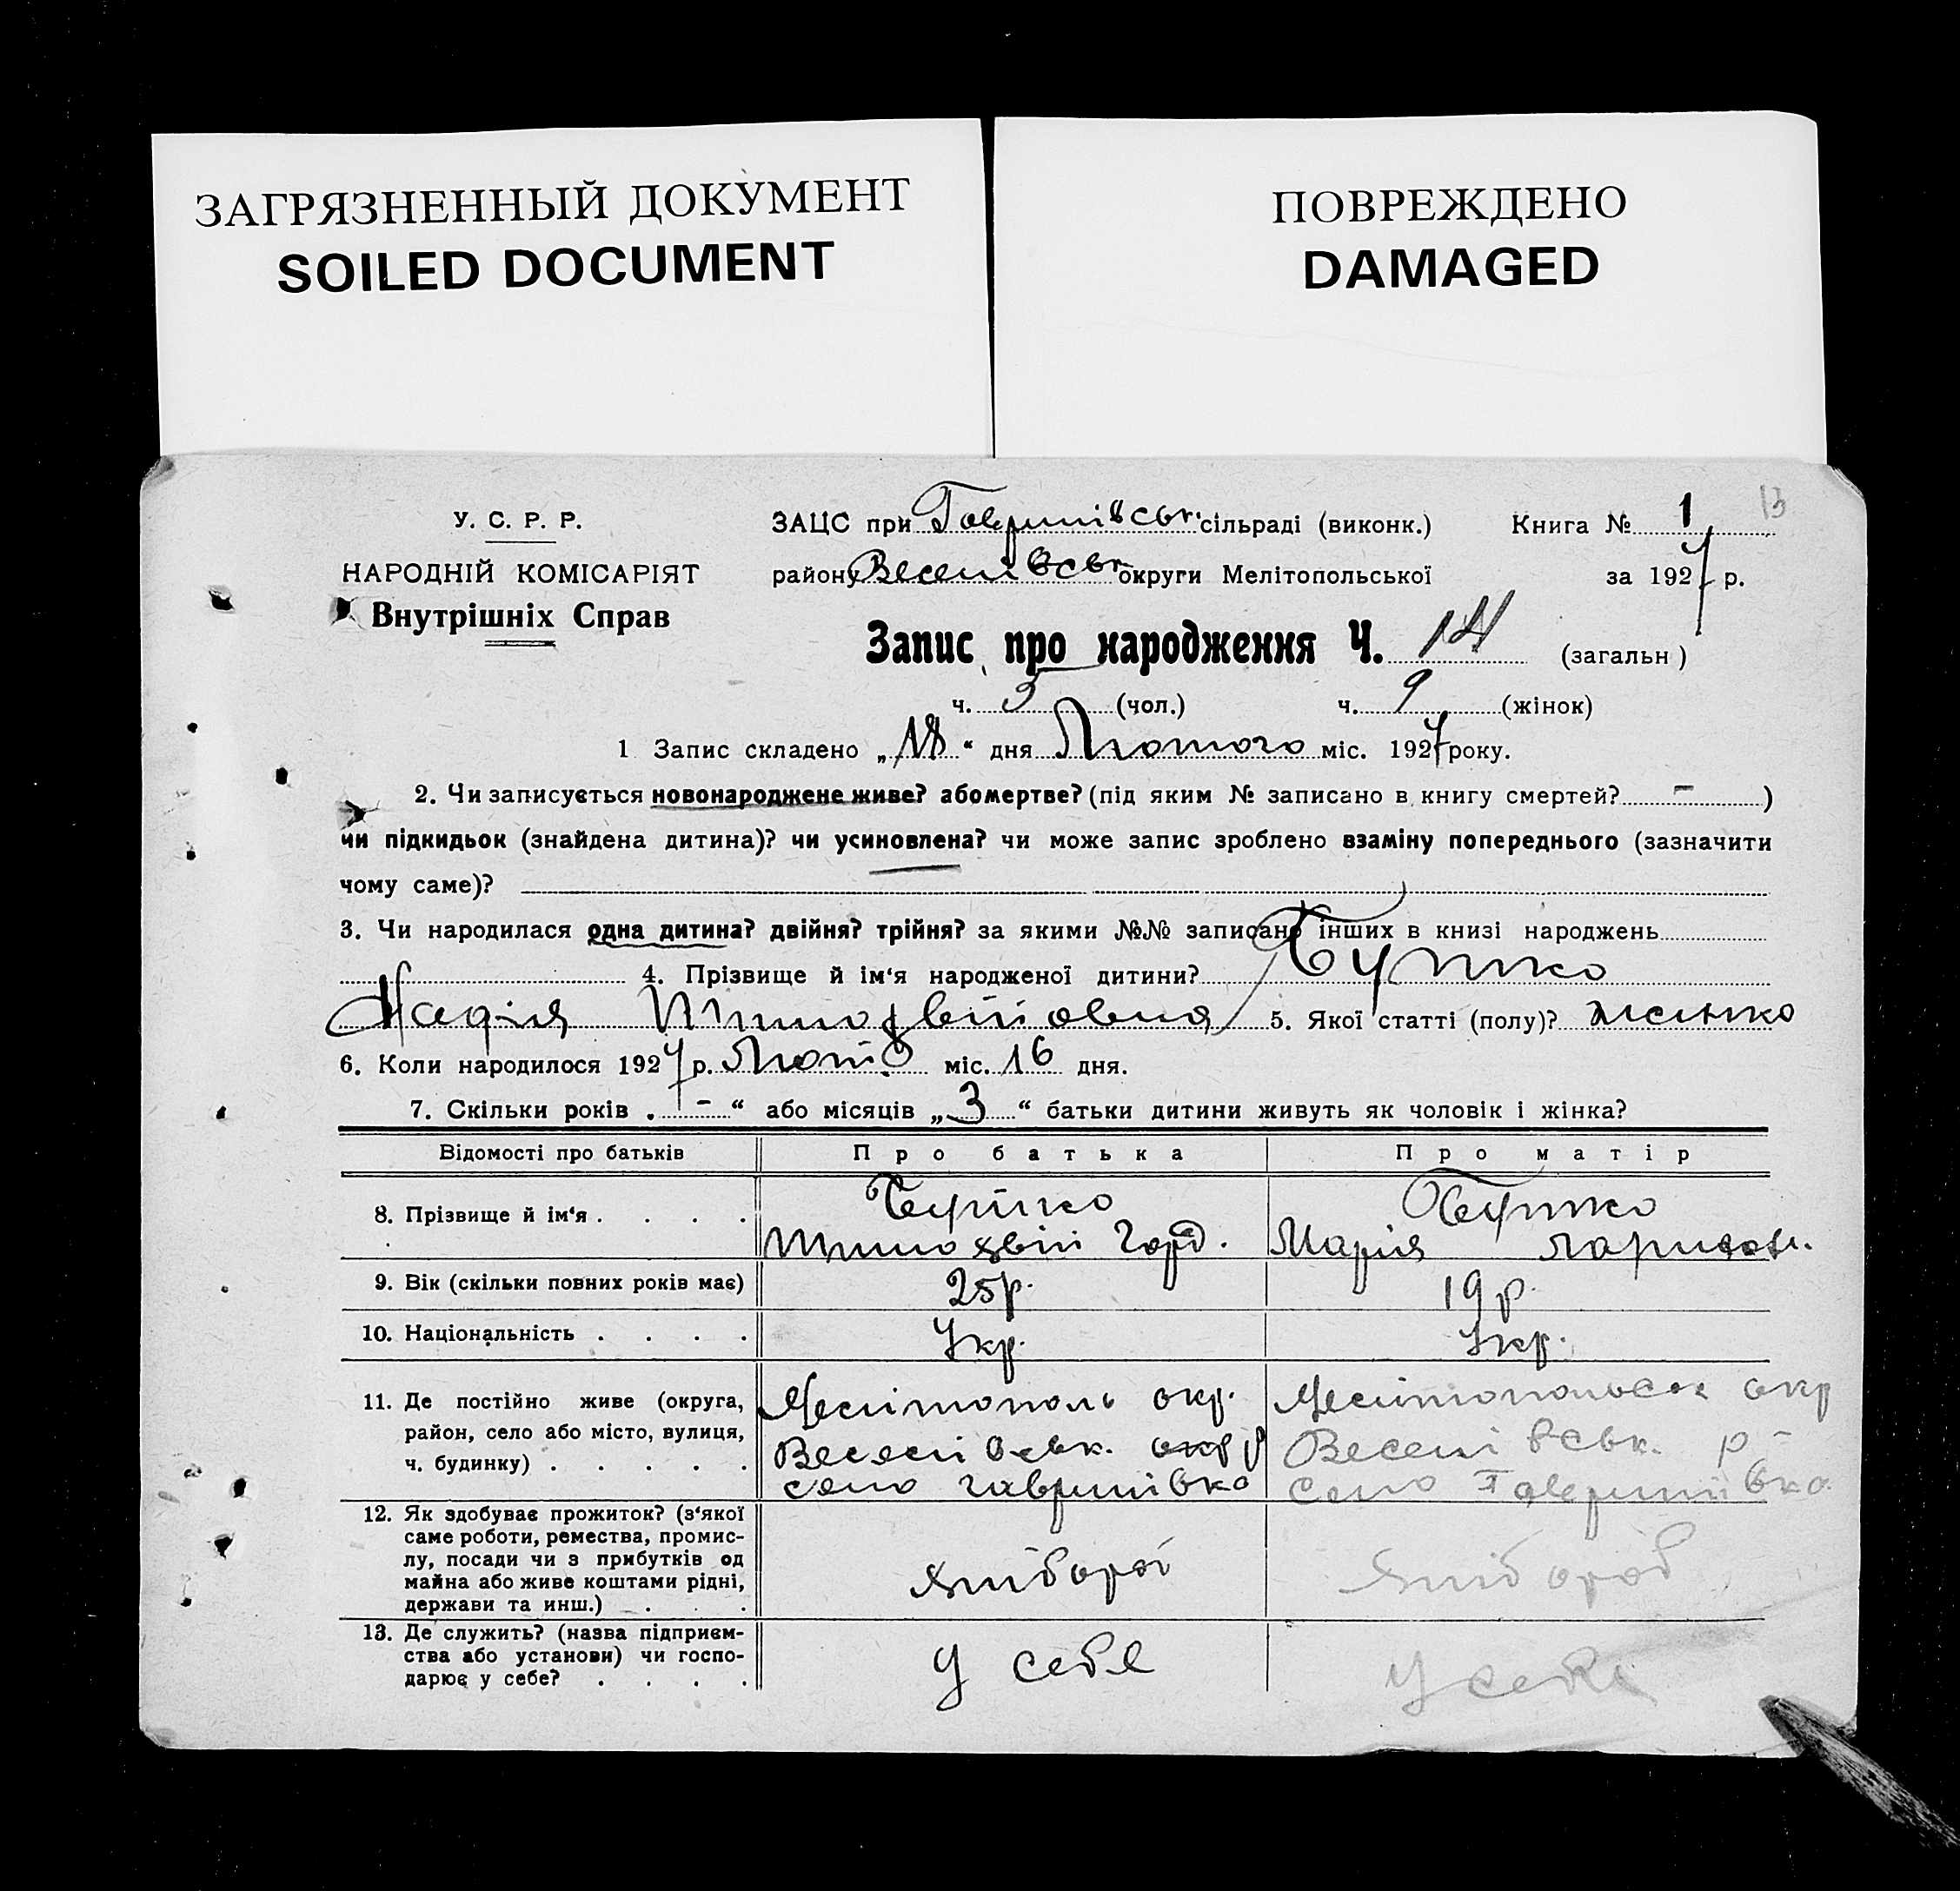 ЗАГРЯЗНЕННЫЙ ДОКУМЕНТ
SOILED DOCUMENT
ПОВРЕЖДЕНО
DAMAGED
У. С. Р. Р.
НАРОДНІЙ КОМІСАРІЯТ
Внутрішніх Справ
ЗАЦС при Гаврилівськ. сільраді (виконк.) Книга № 1 13
району Веселівськ округи Мелітопольської за 1927 р.
Запис про народження Ч. 14 (загальн)
ч. 5 (чол.) ч. 9 (жінок)
1 Запис складено „18“ дня Лютого міс. 1927 року.
2. Чи записується новонароджене живе? або мертве? (під яким № записано в книгу смертей? - )
чи підкидьок (знайдена дитина)? чи усиновлена? чи може запис зроблено взаміну попереднього (зазначити
чому саме)?
3. Чи народилася одна дитина? двійня? трійня? за якими №№ записано інших в книзі народжень
4. Прізвище й ім‘я народженої дитини? Бутко
Надія Тимофвійовна 5. Якої статті (полу)? жінка
6. Коли народилося 1927 р. Лют. міс. 16 дня.
7. Скільки років „ - “ або місяців „ 3 “ батьки дитини живуть як чоловік і жінка?
Відомості про батьків Про батька Про матір
8. Прізвище й ім‘я . . . . Бутко Бутко
Тимофвій Горд. Марія
9. Вік (скільки повних років має) 25р. 19р.
10. Національність . . . . Укр. Укр.
11. Де постійно живе (округа, Мелітополь окр. Мелітопольськ окр
район, село або місто, вулиця, Веселівськ. окр р Веселівськ. р-
ч. будинку) . . . . . село гаврилівка село Гаврилівка
12. Як здобуває прожиток? (з‘якої
саме роботи, ремества, промис-
лу, посади чи з прибутків од
майна або живе коштами рідні, хлібороб хлібороб
держави та инш.) . . .
13. Де служить? (назва підприєм-
ства або установи) чи госпо- У себе У себе
дарює у себе? . . . .